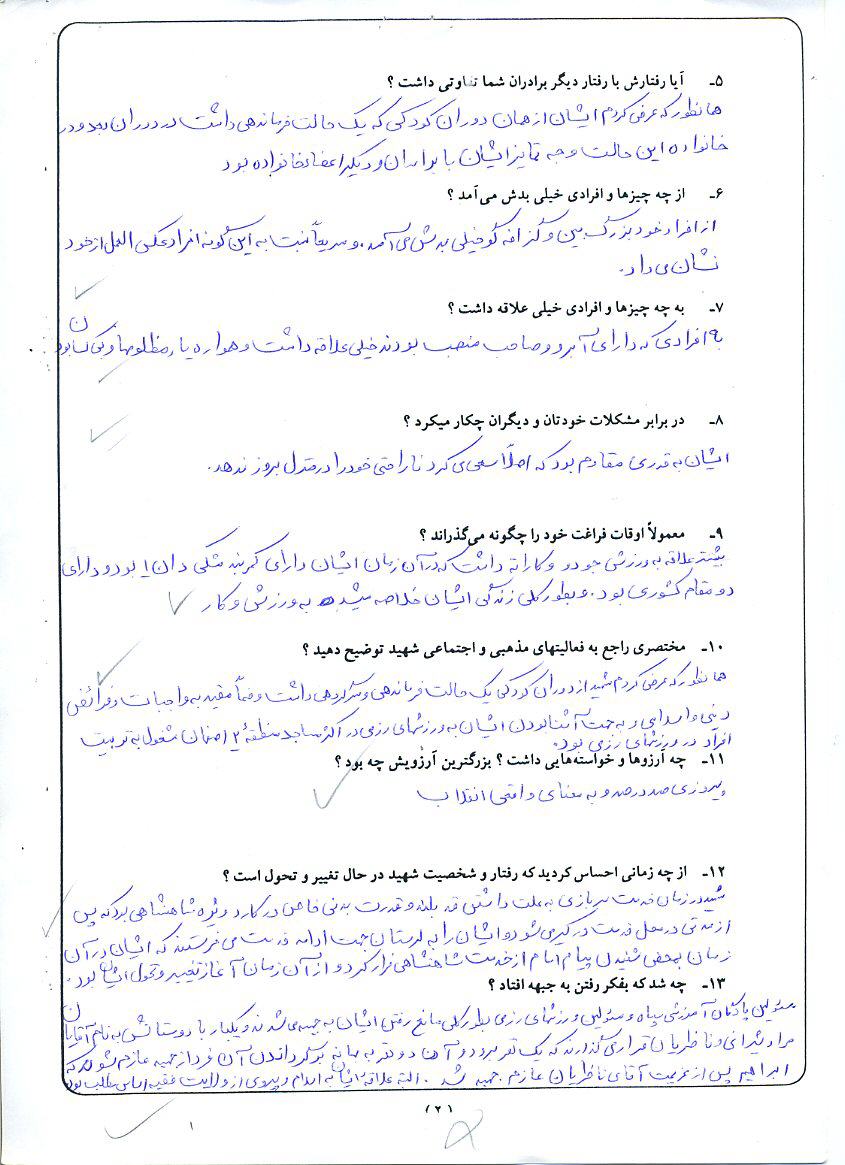 ۵ـ آیا رفتارش با رفتار دیگر برادران شما تفاوتی داشت ؟
همانطور که عرض کردم ایشان از همان دوران کودکی که یک حالت فرماندهی داشت در دوران بعد و در
خانواده این حالت وجه تمایز ایشان با برادران و دیگر اعضاء خانواده بود
۶ـ از چه چیزها و افرادی خیلی بدش می‌آمد ؟
از افراد خود بزرگ بین و گزافه گو خیلی بدش می آمد. و سریعاً نسبت به این گونه افراد عکس العمل از خود
نشان می داد.
۷ـ به چه چیزها و افرادی خیلی علاقه داشت ؟
به افرادی که دارای آبرو و صاحب منصب بودند خیلی علاقه داشت و همواره یار مظلومها و بی کسان بود
۸ـ در برابر مشکلات خودتان و دیگران چکار میکرد ؟
ایشان به قدری مقاوم بود که اصلاً سعی می کرد ناراحتی خود را در منزل بروز ندهد.
۹ـ معمولاً اوقات فراغت خود را چگونه می‌گذراند ؟
بیشتر علاقه به ورزش جودو و کاراته داشت که در آن زمان ایشان دارای کمربند مشکی دان ۱ بود و دارای
دو مقام کشوری بود. و بطور کلی زندگی ایشان خلاصه میشد به ورزش و کار
۱۰ـ مختصری راجع به فعالیتهای مذهبی و اجتماعی شهید توضیح دهید ؟
همانطور که عرض کردم شهید از دوران کودکی یک حالت فرماندهی و سرکردهی داشت و ضمناً مقید به واجبات و فرائض
دینی و اسلامی و به جهت آشنا بودن ایشان به ورزشهای رزمی در اکثر مساجد منطقه ۲ اصفهان مشغول به تربیت
افراد در ورزشهای رزمی بود.
۱۱ـ چه آرزوها و خواسته‌هایی داشت ؟ بزرگترین آرزویش چه بود ؟
پیروزی صد در صد و به معنای واقعی انقلاب
۱۲ـ از چه زمانی احساس کردید که رفتار و شخصیت شهید در حال تغییر و تحول است ؟
شهید در زمان خدمت سربازی به علت داشتن قد بلند و قدرت بدنی خاص در گارد ویژه شاهنشاهی بود که پس
از مدتی در محل خدمت درگیری شود و ایشان را به لرستان جهت ادامه خدمت می فرستند که ایشان در آن
زمان به محض شنیدن پیام امام از خدمت شاهنشاهی فرار کرد و از آن زمان آغاز تغییر و تحول ایشان بود.
۱۳ـ چه شد که بفکر رفتن به جبهه افتاد ؟
مسئولین پادگان آموزشی سپاه و مسئولین ورزشهای رزمی بطور کلی مانع رفتن ایشان به جبهه می شدند و یکبار با دوستانش به نام آقایان
مراد شیرانی و ناظریان قرار می گذارند که یک نفر برود و آن دو نفر به بهانه برگرداندن آن فرد از جبهه عازم شوند که
ابراهیم پس از عزیمت آقای ناظریان عازم جبهه شد. البته علاقه ایشان به امام و پیروی از ولایت فقیه اساس طلب بود
(۲)